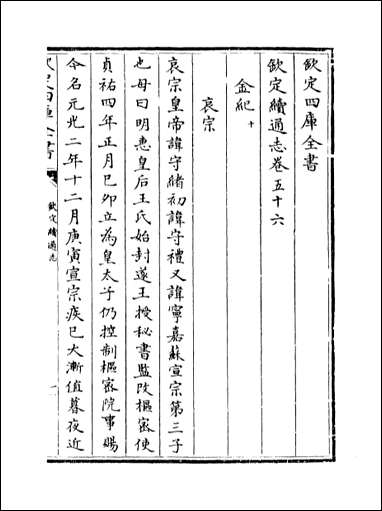 欽定四庫全書
欽定續通志卷五十六
金紀十
哀宗
哀宗皇帝諱守緒初諱守禮又諱寧嘉蘇宣宗第三子
也母曰明惠皇后王氏始封遂王授秘書監改樞密使
貞祐四年正月巳卯立為皇太子仍控制樞密院事賜
今名元光二年十二月庚寅宣宗疾已大漸值暮夜近
欽定四庫全書
欽定續通志
一